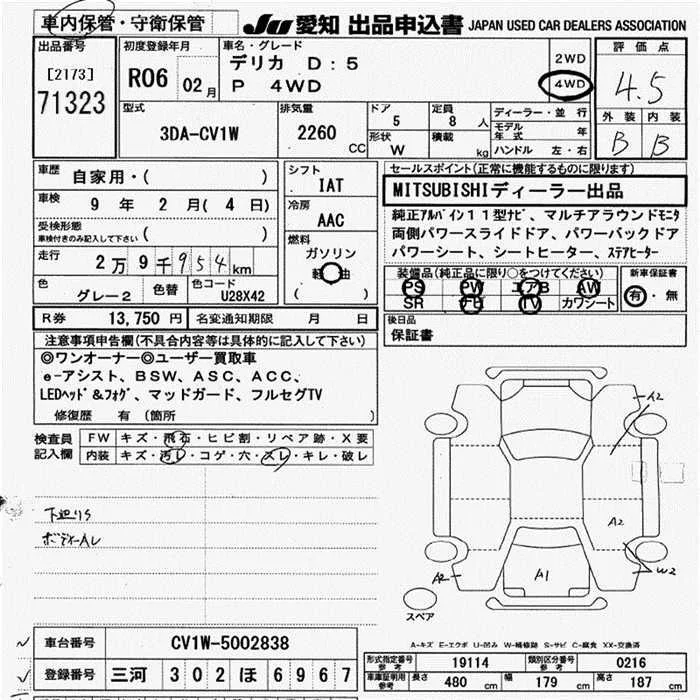 車内保管・守衛保管
JU 愛知 出品申込書 JAPAN USED CAR DEALERS ASSOCIATION
出品番号
[2173]
71323
初度登録年月
R06 02 月
車名・グレード
デリカ D:5
P 4WD
2WD
4WD
評価点
4.5
外装 内装
B B
型式
3DA-CV1W
排気量
2260 CC
ドア
5
形状
W
定員
8 人
積載
kg
ディーラー・並行
モデル年式 年
ハンドル 左・右
車歴
自家用・( )
車検
9 年 2 月 ( 4 日)
受検形態
車検付きのみ記入して下さい ( )
走行
2万9千954km
色
グレー2
色替
色コード
U28X42
シフト
IAT
冷房
AAC
燃料
ガソリン
軽油
( )
セールスポイント(正常に機能するものに限ります)
MITSUBISHIディーラー出品
純正アルパイン11型ナビ、マルチアラウンドモニタ
両側パワースライドドア、パワーバックドア
パワーシート、シートヒーター、ステアヒーター
装備品(純正品に限り○をつけてください)
PS PW エアB AW
SR ナビ TV カワシート
新車保証書
有・無
R券 13,750 円 名変通知期限 月 日
後日品
保証書
注意事項申告欄(不具合内容等は具体的に記入して下さい)
◎ワンオーナー◎ユーザー買取車
e-アシスト、BSW、ASC、ACC、
LEDヘッド&フォグ、マッドガード、フルセグTV
修復歴 有 (箇所 )
検査員記入欄
FW キズ・飛石・ヒビ割・リペア跡・X要
内装 キズ・汚レ・コゲ・穴・スレ・キレ・破レ
下廻りS
ボデーAL
A2
A2
W2
A2
A1
スペア
A-キズ E-エクボ U-凹み W-補修跡 S-サビ C-腐食 XX-交換済
車台番号 CV1W-5002838
登録番号 三河 302 ほ 6967
形式指定番号 参考 19114 類別区分番号 参考 0216
車庫証明用参考 長さ 480 cm 幅 179 cm 高さ 187 cm